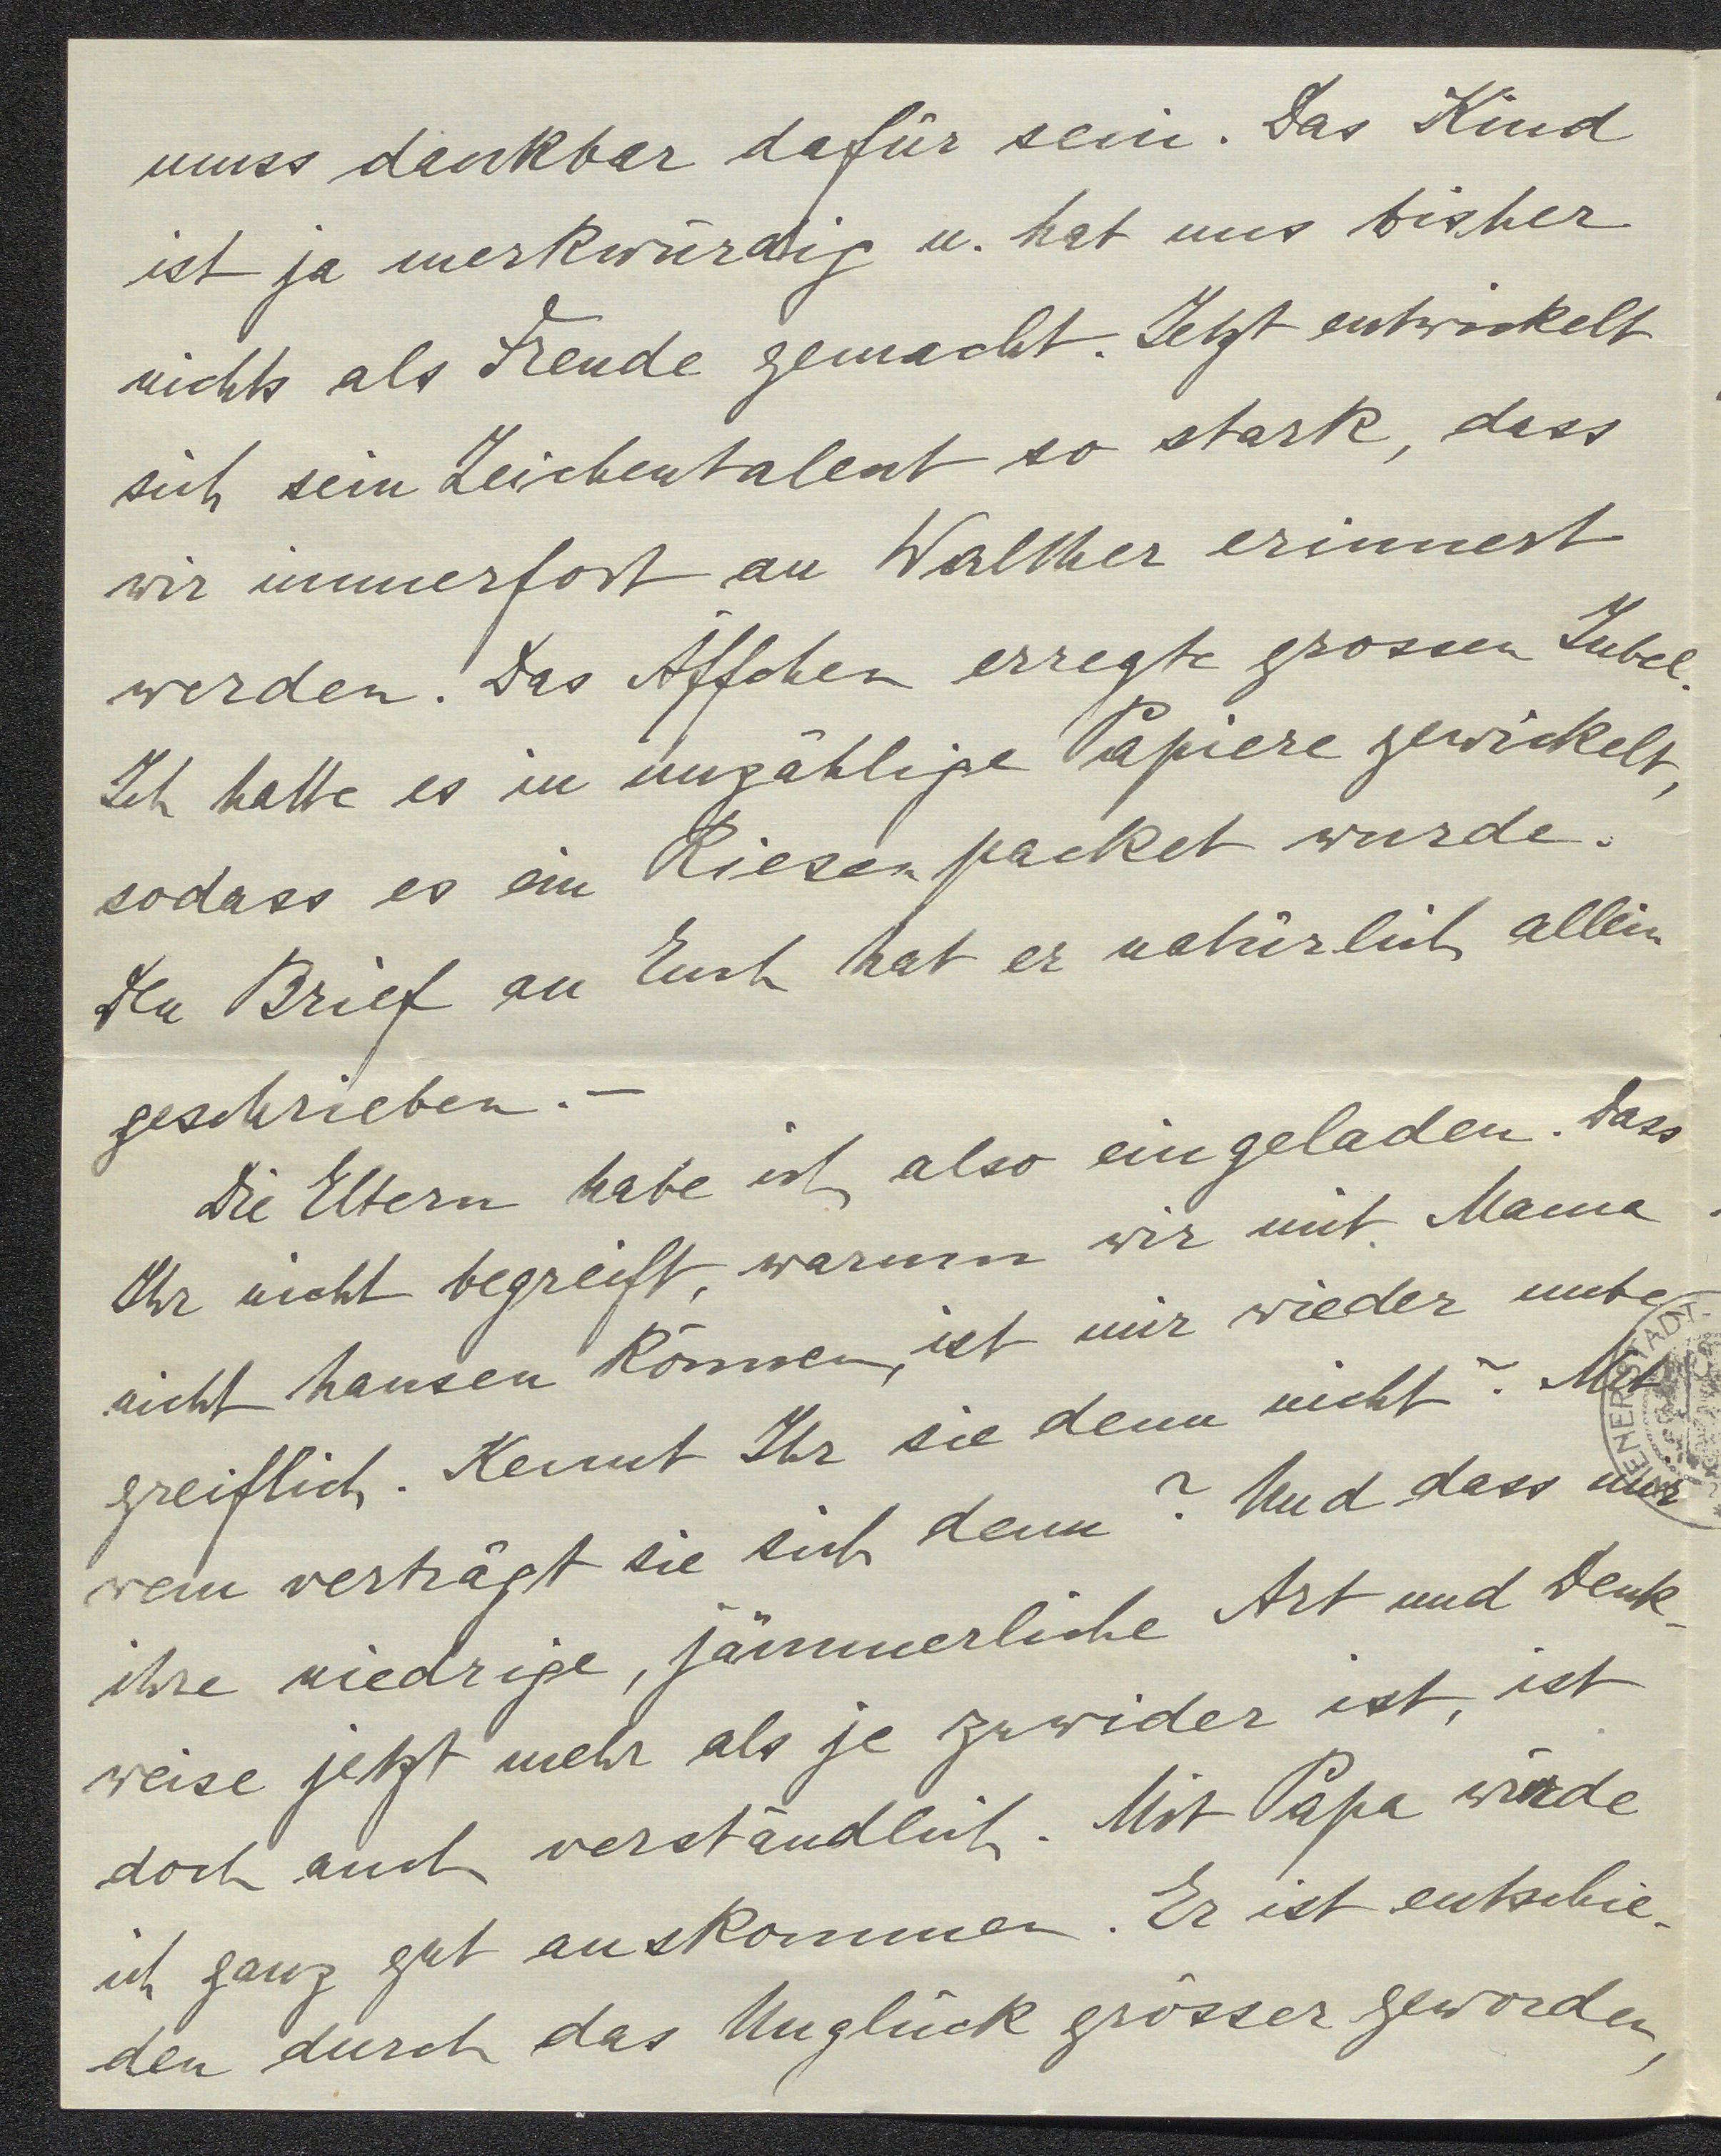 muss dankbar dafür sein. Das Kind
ist ja merkwürdig u. hat uns bisher
nichts als Freude gemacht. Jetzt entwickelt
sich sein Zeichentalent so stark, dass
wir immerfort an Walther erinnert
werden. Das Äffchen erregte grossen Jubel.
Ich hatte es in unzählige Papiere gewickelt,
sodass es ein Riesenpacket wurde.
Den Brief an Euch hat er natürlich allein
geschrieben.–
Die Eltern habe ich also eingeladen. Dass
Ihr nicht begreift, warum wir mit Mama
nicht hausen können, ist mir wieder unbe
greiflich. Kennt Ihr sie denn nicht? Mit
wem verträgt sie sich denn? Und dass mir
ihre niedrige, jämmerliche Art und Denk-
weise jetzt mehr als je zuwider ist, ist
doch auch verständlich. Mit Papa würde
ich ganz gut auskommen. Er ist entschie-
den durch das Unglück grösser geworden,